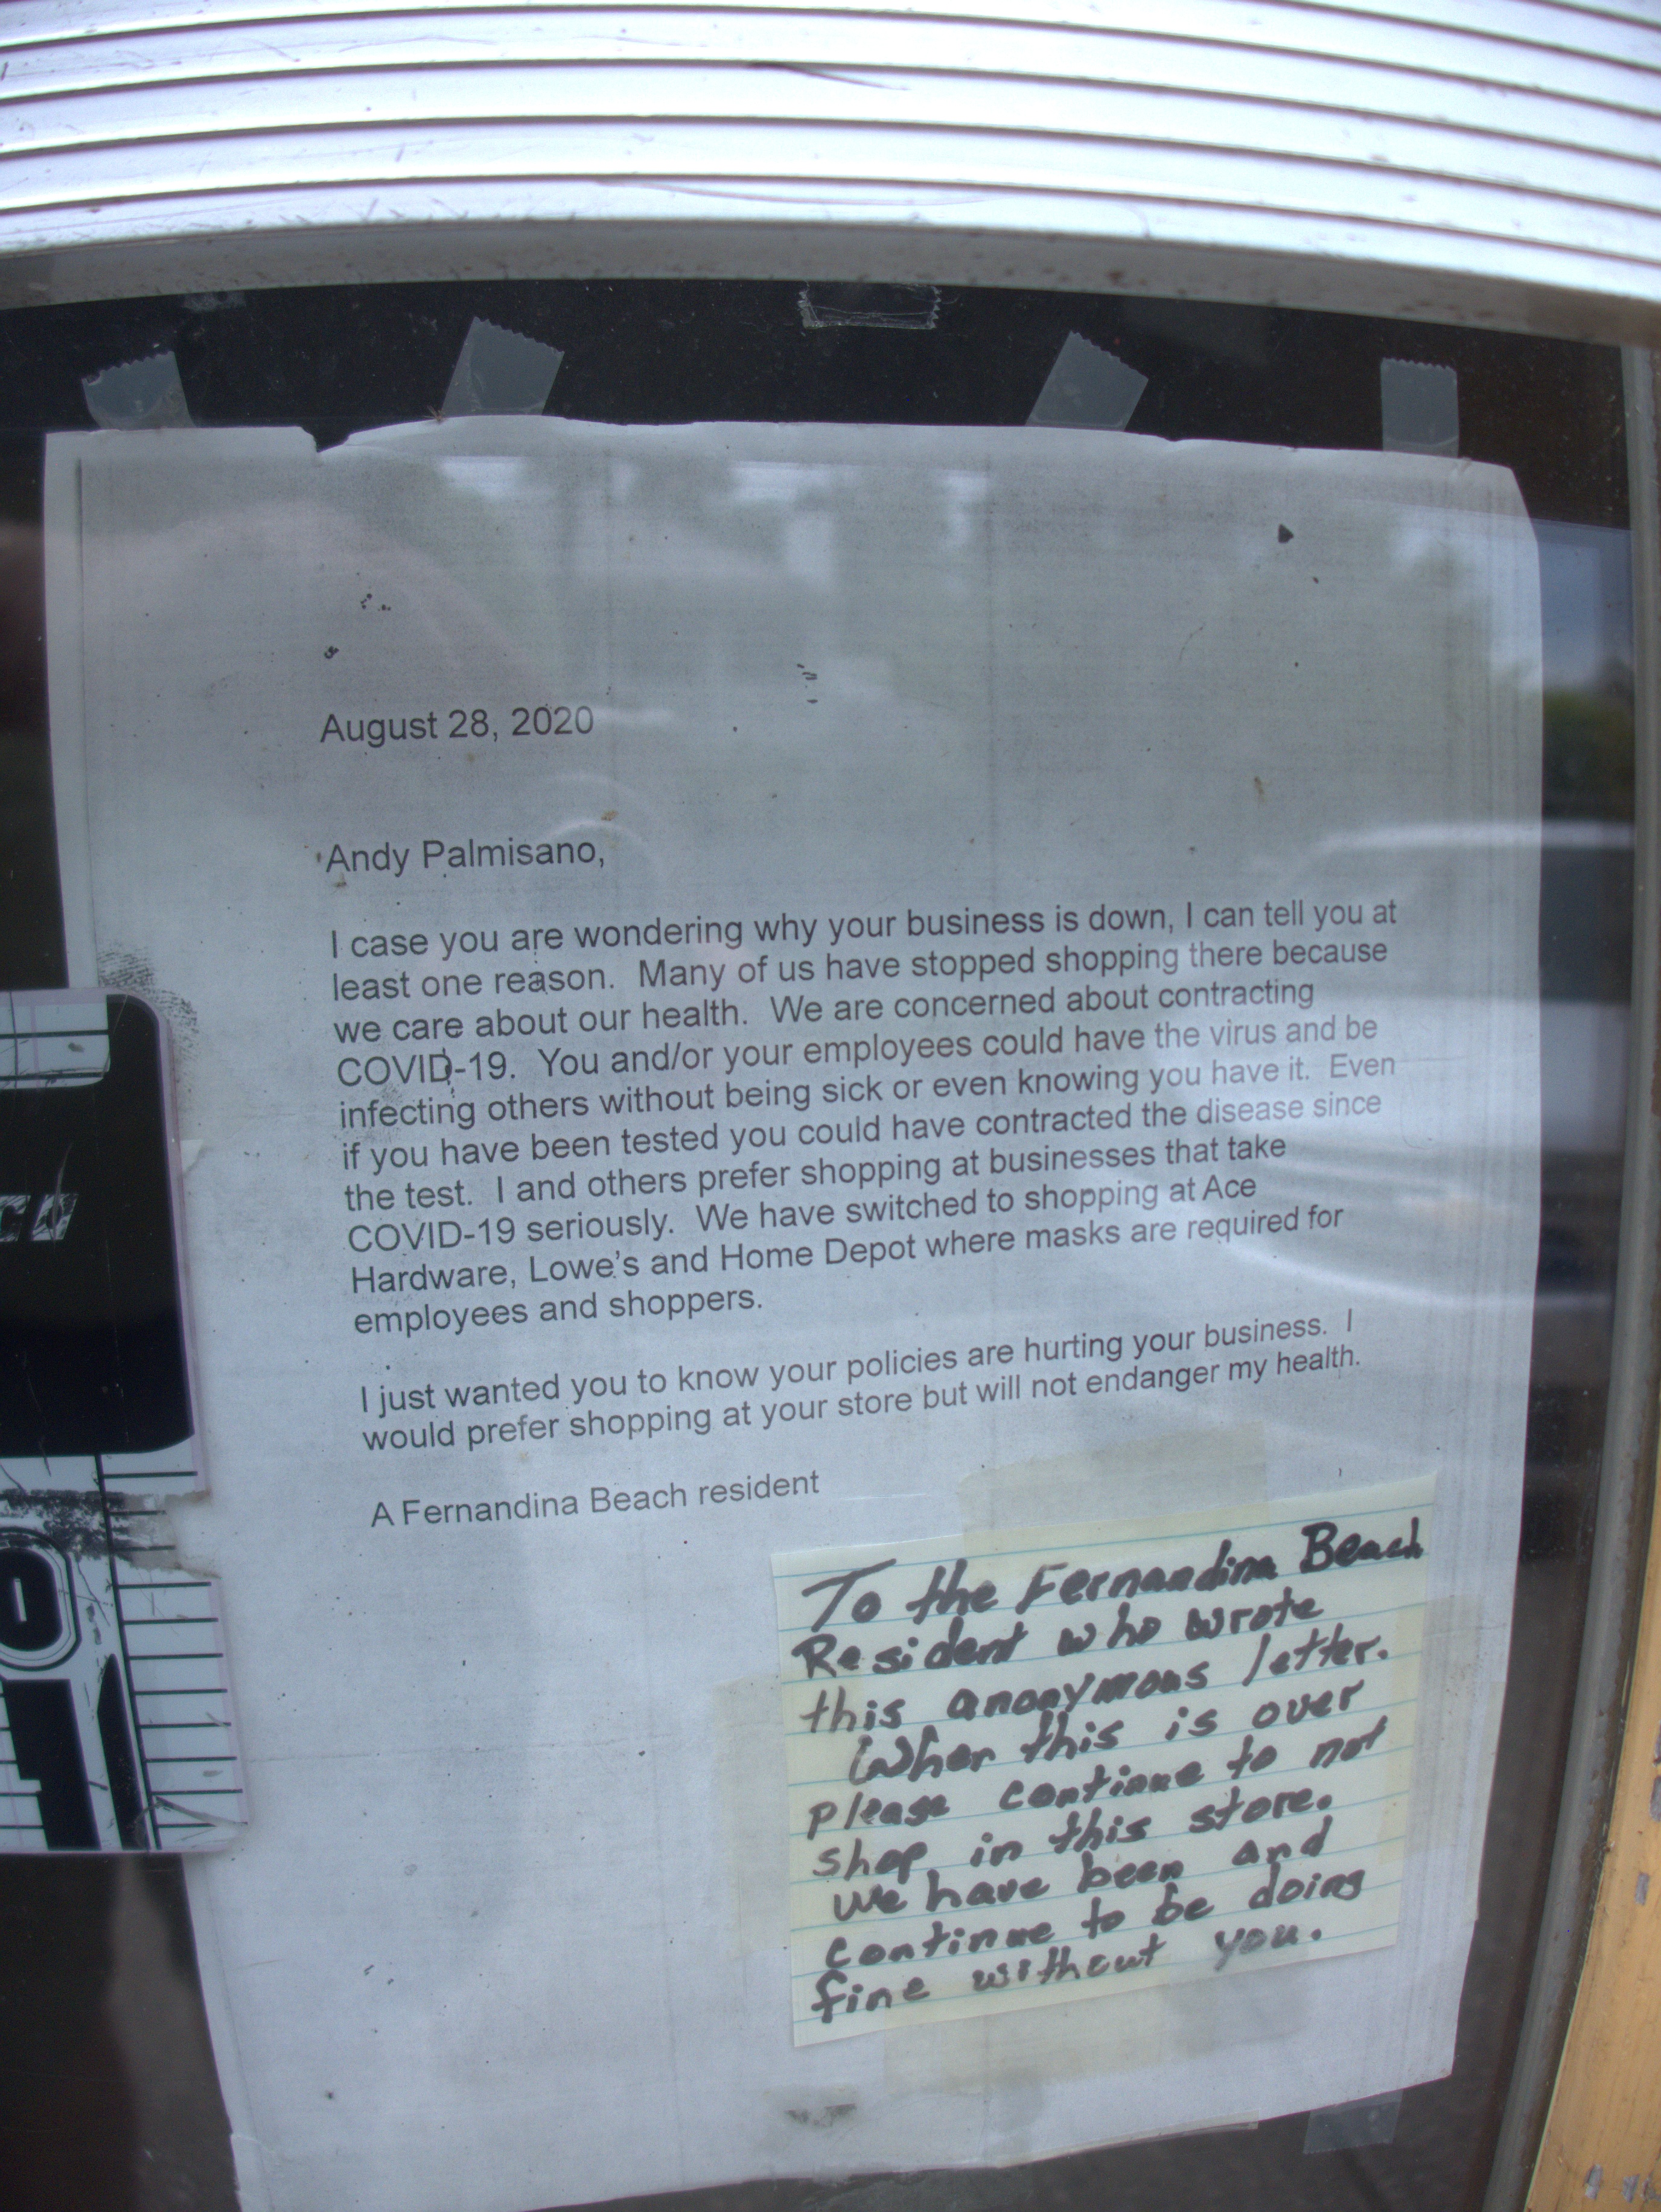 August 28, 2020
Andy Palmisano,
I case you are wondering why your business is down, I can tell you at
least one reason. Many of us have stopped shopping there because
we care about our health. We are concerned about contracting
COVID-19. You and/or your employees could have the virus and be
infecting others without being sick or even knowing you have it. Even
if you have been tested you could have contracted the disease since
the test. I and others prefer shopping at businesses that take
COVID-19 seriously. We have switched to shopping at Ace
Hardware, Lowe's and Home Depot where masks are required for
employees and shoppers.
I just wanted you to know your policies are hurting your business. I
would prefer shopping at your store but will not endanger my health.
A Fernandina Beach resident
To the Fernandina Beach
Resident who wrote
this anonymous letter.
When this is over
please continue to not
shop in this store.
we have been and
continue to be doing
fine without you.